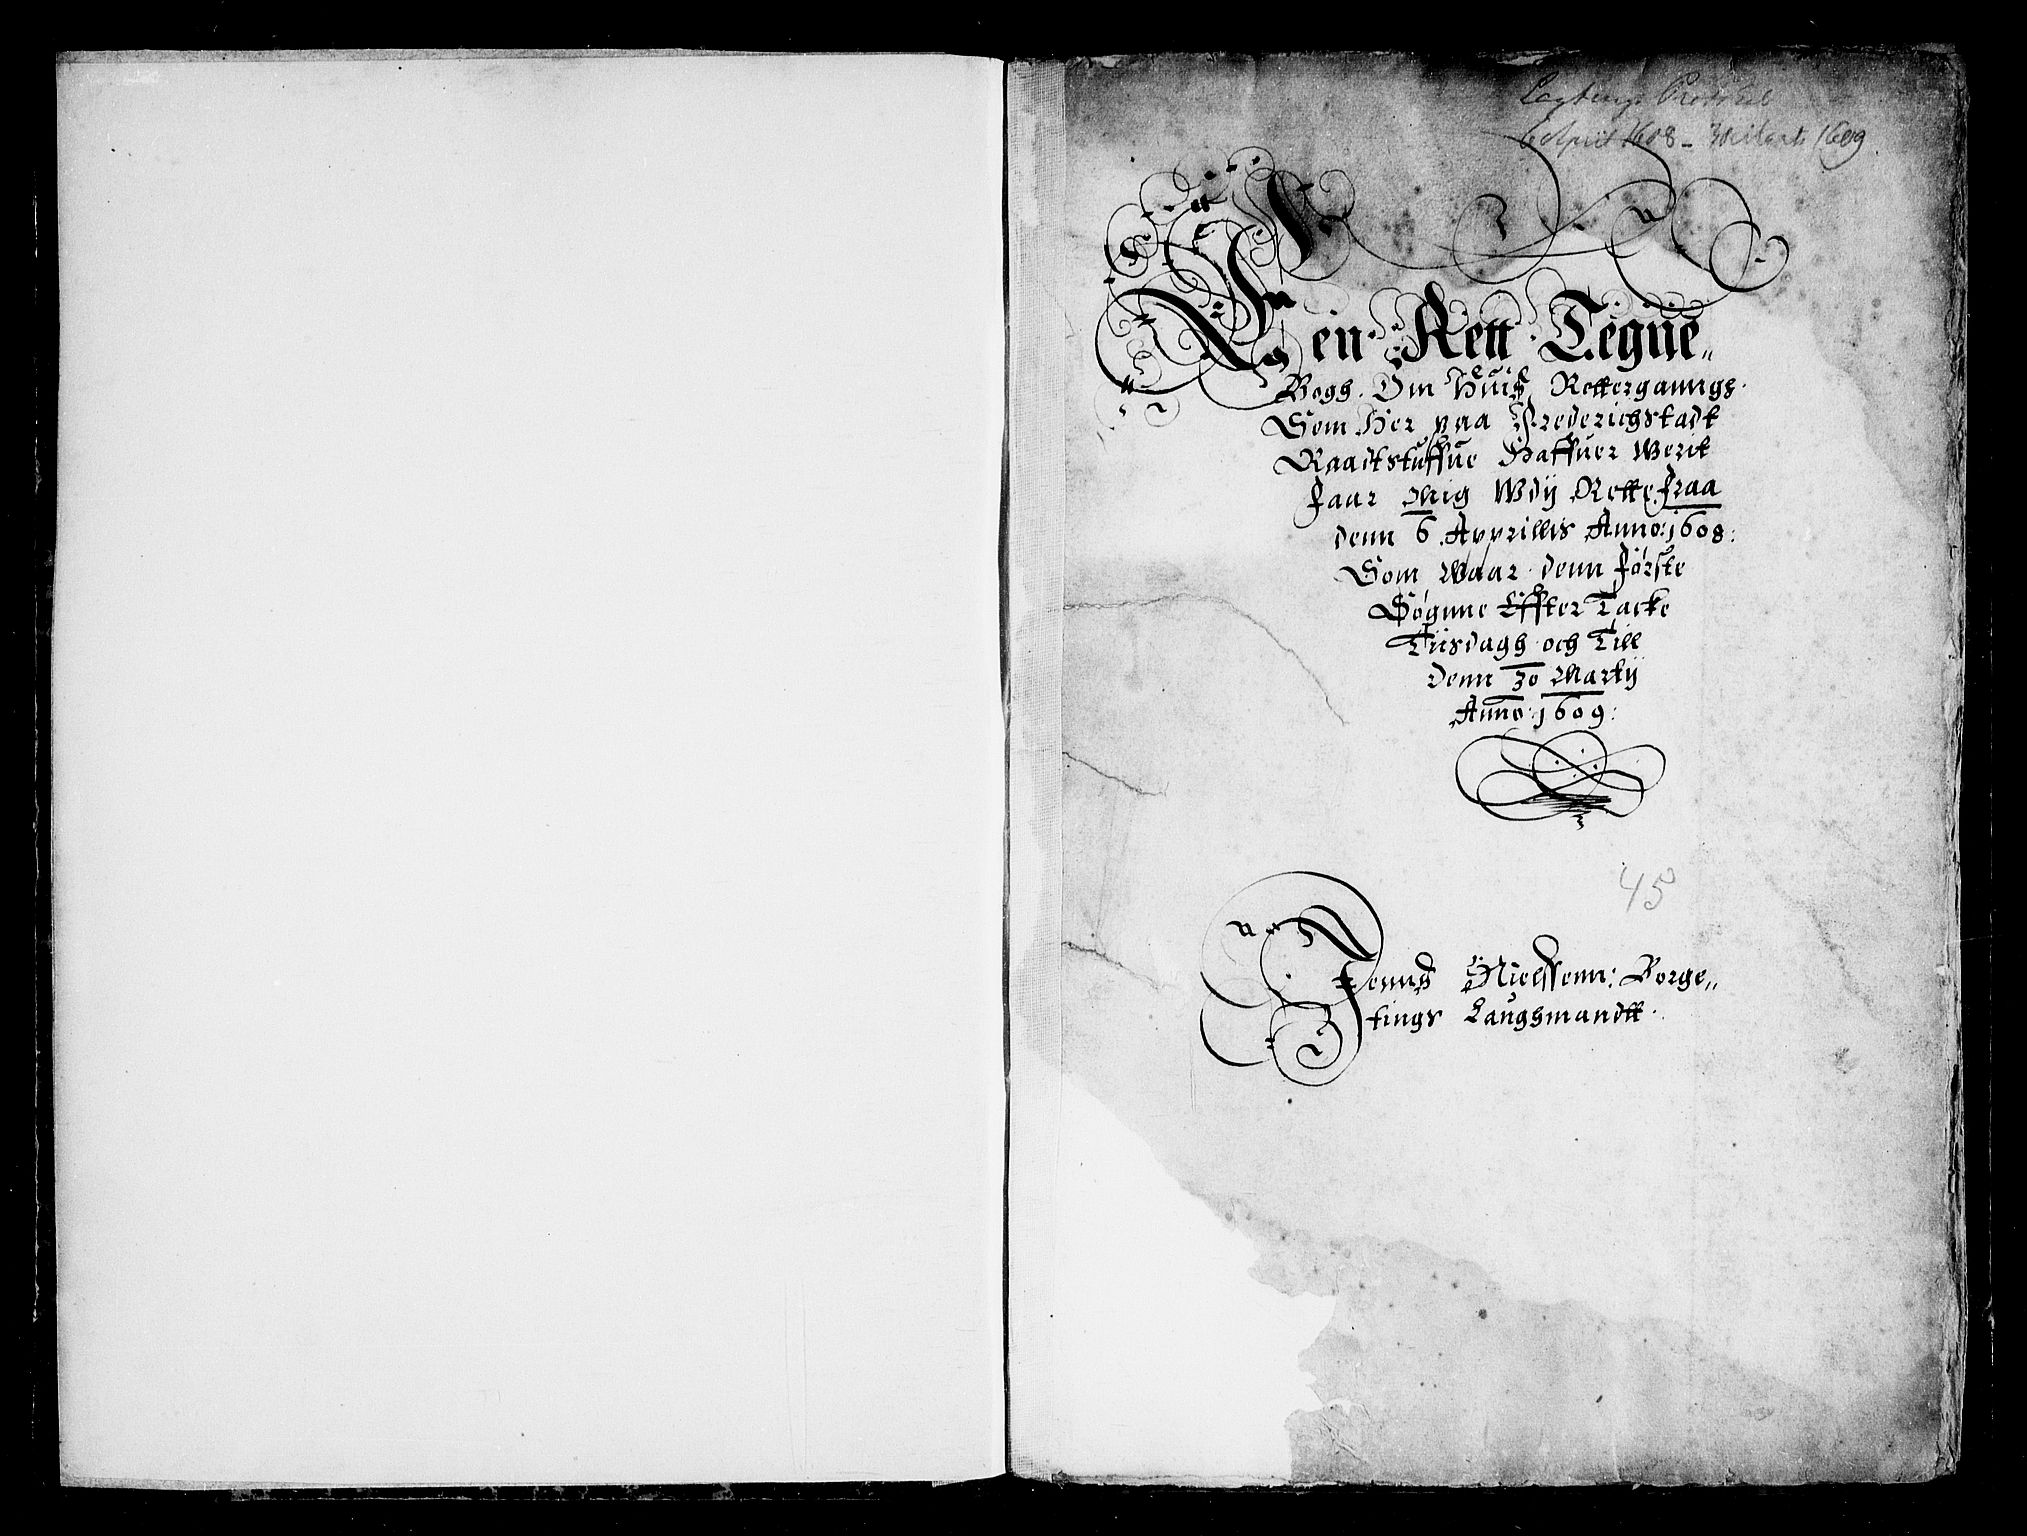 Lagtings Protokol
6 April 1608 - 30 Marts 1609.
En Rett Tegne„
Bogh. Om Huis Rettergannngs
Som Her paa Frederichstadt
Raadtstuffue Haffuer Werit
faar Mig Wdij Rette, fraa
denn 6 Apprillis Anno: 1608:
Som waar denn förste
Sögnne Effter Tacke
Tiisdagh och Till
denn 30 Martij
Anno: 1609:
45
Jenns Nielssenn: Borge„
tings Laughmandtt.